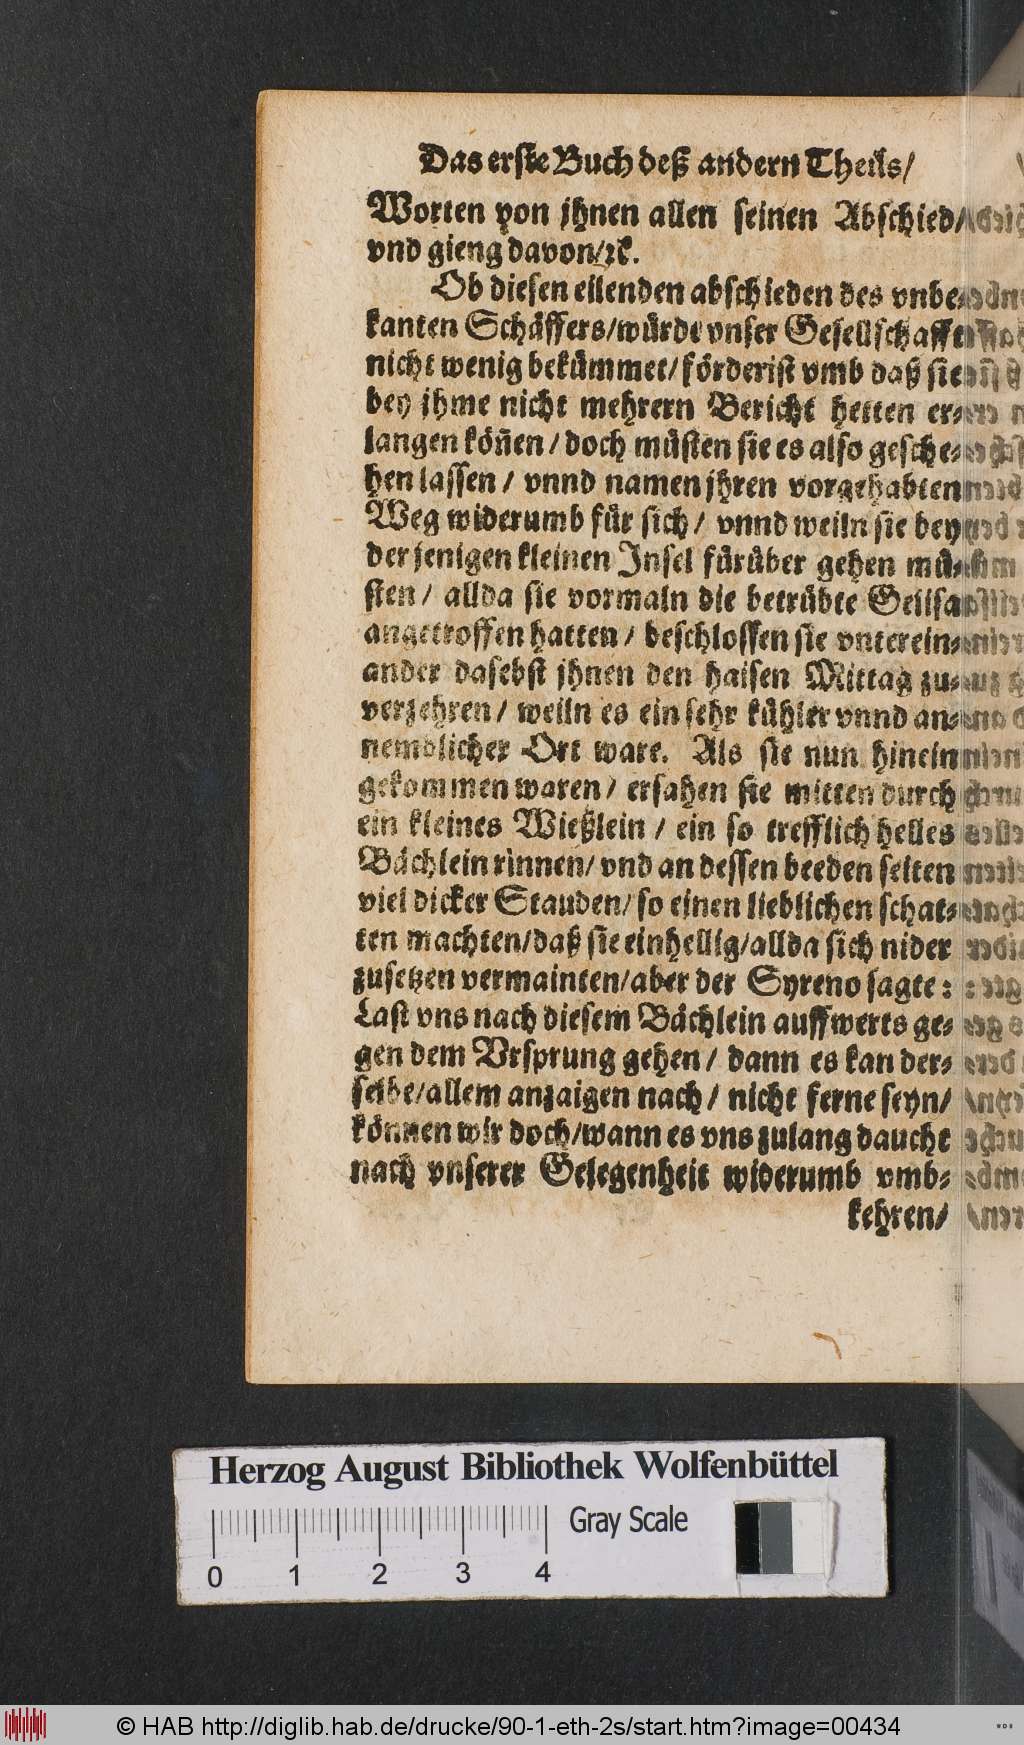 Das erste Buch deß andern Theils/
Worten von jhnen allen seinen Abschied/
vnd gieng davon/ꝛc.
Ob diesen eilenden abschieden des vnbe-
kanten Schäffers/würde vnser Gesellschafft
nicht wenig bekümmet/förderist vmb daß sie
bey jhme nicht mehrern Bericht hetten er-
langen köñen/doch müsten sie es also gesche-
hen lassen/ vnnd namen jhren vorgehabten
Weg widerumb für sich/ vnnd weiln sie bey
der jenigen kleinen Insel fürüber gehen mü-
sten/ allda sie vormaln die betrübte Gelisa
angetroffen hatten/ beschlossen sie vnterein-
ander dasebst jhnen den haisen Mittag zu-
verzehren/ weiln es ein sehr kühler vnnd an-
nemblicher Ort ware. Als sie nun hinein
gekommen waren/ ersahen sie mitten durch
ein kleines Wießlein/ ein so trefflich helles
Bächlein rinnen/ vnd an dessen beeden seiten
viel dicker Stauden/ so einen lieblichen schat-
ten machten/daß sie einhellig/allda sich nider
zusetzen vermainten/aber der Syreno sagte:
Last vns nach diesem Bächlein auffwerts ge-
gen dem Vrsprung gehen/ dann es kan der-
selbe/allem anzaigen nach/ nicht ferne seyn/
können wir doch/wann es vns zulang daucht
nach vnserer Gelegenheit widerumb vmb-
kehren/
Herzog August Bibliothek Wolfenbüttel
Gray Scale
0 1 2 3 4
© HAB http://diglib.hab.de/drucke/90-1-eth-2s/start.htm?image=00434